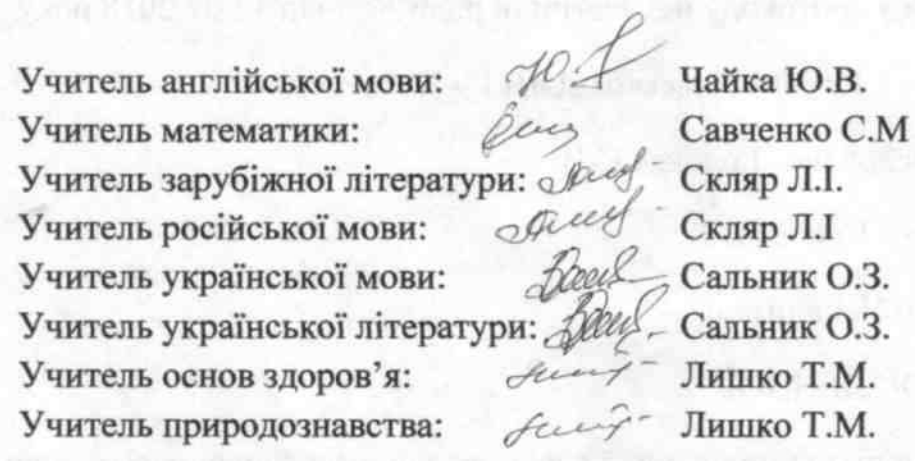 Учитель англійської мови: Чайка Ю.В.
Учитель математики: Савченко С.М
Учитель зарубіжної літератури: Скляр Л.І.
Учитель російської мови: Скляр Л.І
Учитель української мови: Сальник О.З.
Учитель української літератури: Сальник О.З.
Учитель основ здоров’я: Лишко Т.М.
Учитель природознавства: Лишко Т.М.